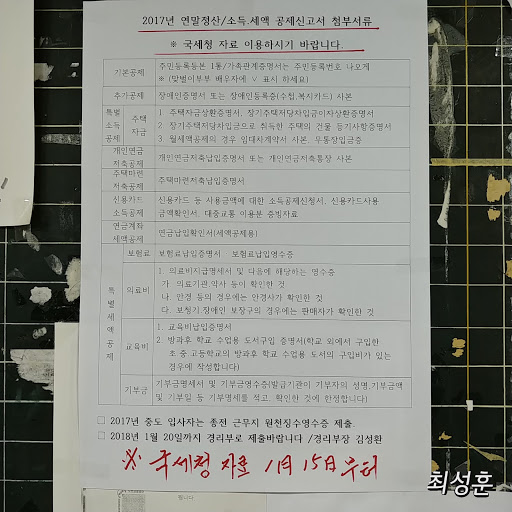 2017년 연말정산/소득.세액 공제신고서 첨부서류
※ 국세청 자료 이용하시기 바랍니다.
기본공제
주민등록등본 1통/가족관계증명서는 주민등록번호 나오게
※ (맞벌이부부 배우자에 ∨ 표시 하세요)
추가공제
장애인증명서 또는 장애인등록증(수첩,복지카드) 사본
특별
소득
공제
주택
자금
1. 주택자금상환증명서, 장기주택저당차입금이자상환증명서
2. 장기주택저당차입금으로 취득한 주택의 건물 등기사항증명서
3. 월세액공제의 경우 임대차계약서 사본, 무통장입금증
개인연금
저축공제
개인연금저축납입증명서 또는 개인연금저축통장 사본
주택마련
저축공제
주택마련저축납입증명서
신용카드
소득공제
신용카드 등 사용금액에 대한 소득공제신청서, 신용카드사용
금액확인서, 대중교통 이용분 증빙자료
연금계좌
세액공제
연금납입확인서(세액공제용)
특
별
세
액
공
제
보험료
보험료납입증명서 보험료납입영수증
의료비
1. 의료비지급명세서 및 다음에 해당하는 영수증
가. 의료기관.약사 등이 확인한 것
나. 안경 등의 경우에는 안경사가 확인한 것
다. 보청기.장애인 보장구의 경우에는 판매자가 확인한 것
교육비
1. 교육비납입증명서
2. 방과후 학교 수업용 도서구입 증명서(학교 외에서 구입한
초.중.고등학교의 방과후 학교 수업용 도서의 구입비가 있는
경우에 작성합니다)
기부금
기부금명세서 및 기부금영수증(발급기관이 기부자의 성명,기부금액
및 기부일 등 기부명세를 적고, 확인한 것에 한정합니다)
□ 2017년 중도 입사자는 종전 근무지 원천징수영수증 제출.
□ 2018년 1월 20일까지 경리부로 제출바랍니다 /경리부장 김성환
※ 국세청 자료 1월 15일부터
최성훈